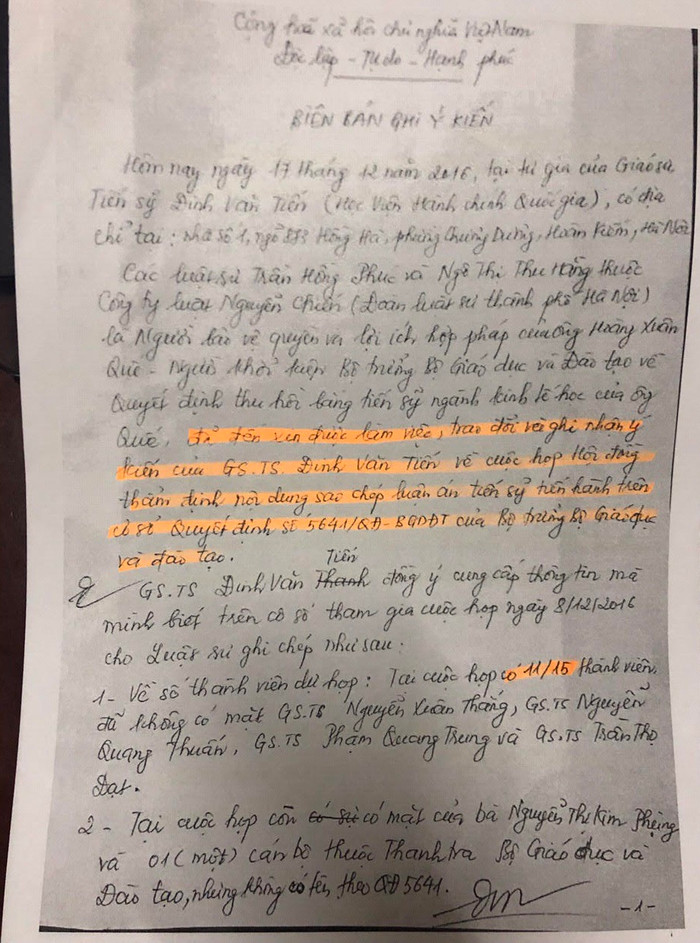 Cộng hoà xã hội chủ nghĩa Việt Nam
Độc lập - Tự do - Hạnh phúc
BIÊN BẢN GHI Ý KIẾN
Hôm nay ngày 17 tháng 12 năm 2016, tại tư gia của Giáo sư,
Tiến sỹ Đinh Văn Tiến (Học Viện Hành chính Quốc gia), có địa
chỉ tại: Nhà số 1, ngõ 883 Hồng Hà, phường Chương Dương, Hoàn Kiếm, Hà Nội
Các luật sư Trần Hồng Phúc và Ngô Thị Thu Hằng thuộc
Công ty luật Nguyễn Chiến (Đoàn luật sư thành phố Hà Nội)
là Người bảo vệ quyền và lợi ích hợp pháp của ông Hoàng Xuân
Quế - Người khởi kiện Bộ trưởng Bộ Giáo dục và Đào tạo về
Quyết định thu hồi bằng tiến sỹ ngành kinh tế học của ông
Quế, đã đến xin được làm việc, trao đổi và ghi nhận ý
kiến của GS.TS. Đinh Văn Tiến về cuộc họp Hội đồng
thẩm định nội dung sao chép luận án tiến sỹ tiến hành trên
cơ sở Quyết định số 5641/QĐ-BGDĐT của Bộ trưởng Bộ Giáo dục
và đào tạo.
Tiến
GS.TS Đinh Văn Thanh đồng ý cung cấp thông tin mà
mình biết trên cơ sở tham gia cuộc họp ngày 8/12/2016
cho Luật sư ghi chép như sau:
1- Về số thành viên dự họp: Tại cuộc họp có 11/15 thành viên,
đã không có mặt GS.TS Nguyễn Xuân Thắng, GS.TS Nguyễn
Quang Thuấn, GS.TS Phạm Quang Trung và GS.TS Trần Thọ
Đạt.
2- Tại cuộc họp còn có sự có mặt của bà Nguyễn Thị Kim Phụng
và 01 (một) cán bộ thuộc Thanh tra Bộ Giáo dục và
Đào tạo, nhưng không có tên theo QĐ 5641.
-1-